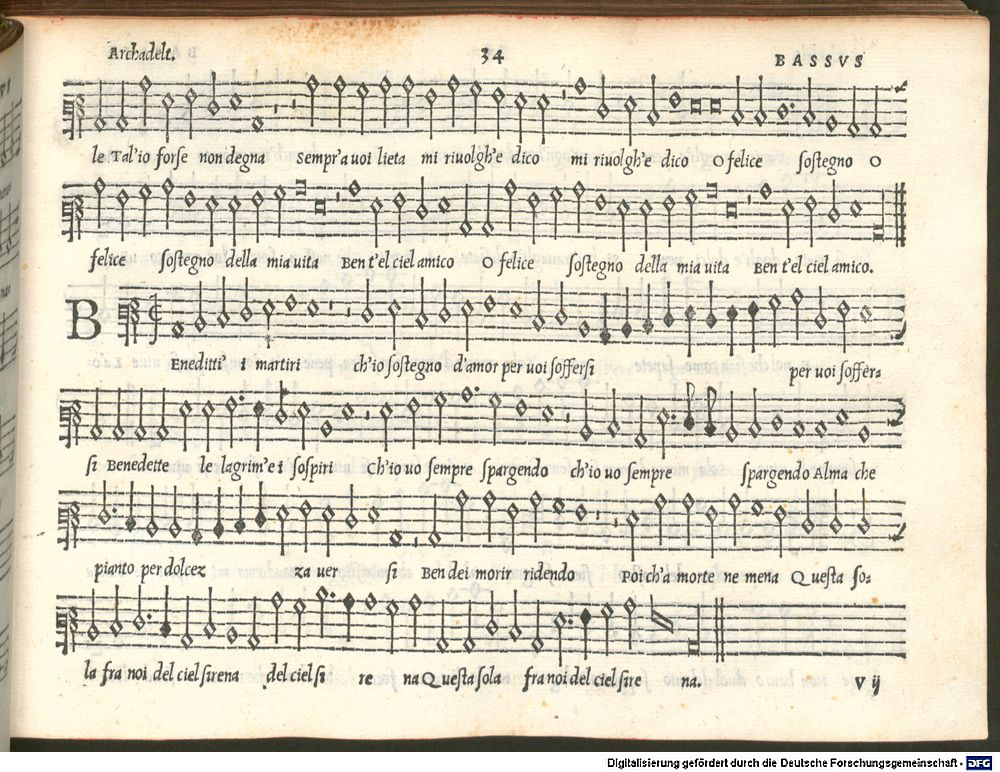 Archadelt. 34 BASSVS
le Tal'io forse non degna Sempr'a uoi lieta mi riuolgh'e dico mi riuolgh'e dico O felice sostegno O
felice sostegno della mia uita Ben t'el ciel amico O felice sostegno della mia uita Ben t'el ciel amico.
B Eneditti i martiri ch'io sostegno d'amor per uoi soffersi per uoi soffer=
si Benedette le lagrim'e i sospiri Ch'io uo sempre spargendo ch'io uo sempre spargendo Alma che
pianto per dolcez za uer si Ben dei morir ridendo Poi ch'a morte ne mena Questa so=
la fra noi del ciel sirena del ciel si re na Questa sola fra noi del ciel sire na.
V ij
Digitalisierung gefördert durch die Deutsche Forschungsgemeinschaft - DFG